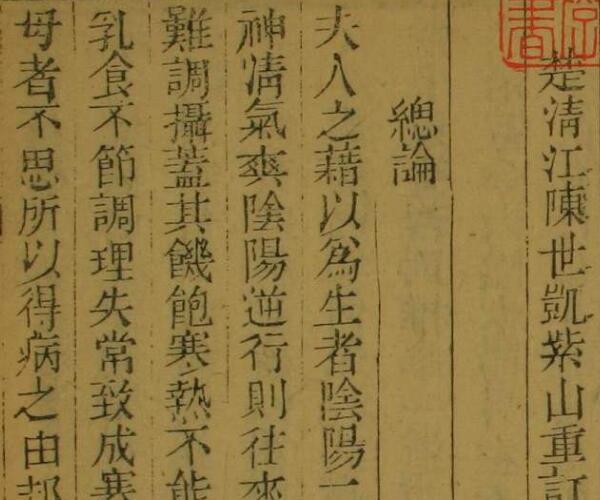 楚清江陳世凱紫山重訂
總論
夫人之藉以為生者陰陽二
神清氣爽陰陽逆行則往來
難調攝蓋其饑飽寒熱不能
乳食不節調理失常致成寒
母者不思所以得病之由却